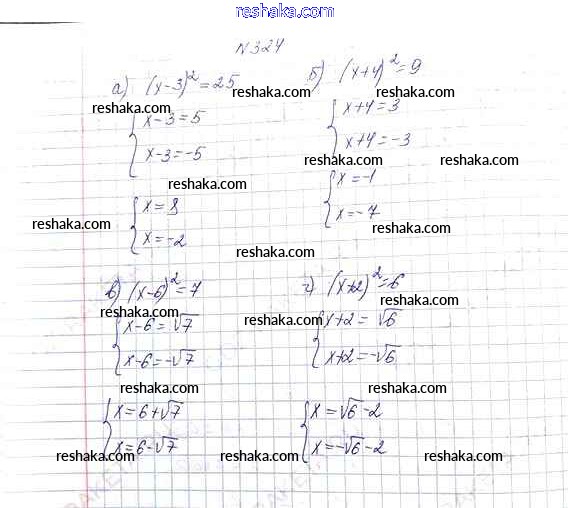 reshaka.com
№324
а) (x-3)²=25
б) (x+4)²=9
reshaka.com reshaka.com
{ x-3=5
x-3=-5
{ x+4=3
x+4=-3
reshaka.com
reshaka.com reshaka.com
reshaka.com
{ x=8
x=-2
{ x=-1
x=-7
reshaka.com reshaka.com
reshaka.com
в) (x-6)²=7
г) (x+2)²=6
reshaka.com reshaka.com
{ x-6=√7
x-6=-√7
{ x+2=√6
x+2=-√6
reshaka.com reshaka.com
reshaka.com reshaka.com
{ x=6+√7
x=6-√7
{ x=√6-2
x=-√6-2
reshaka.com reshaka.com
reshaka.com reshaka.com reshaka.com